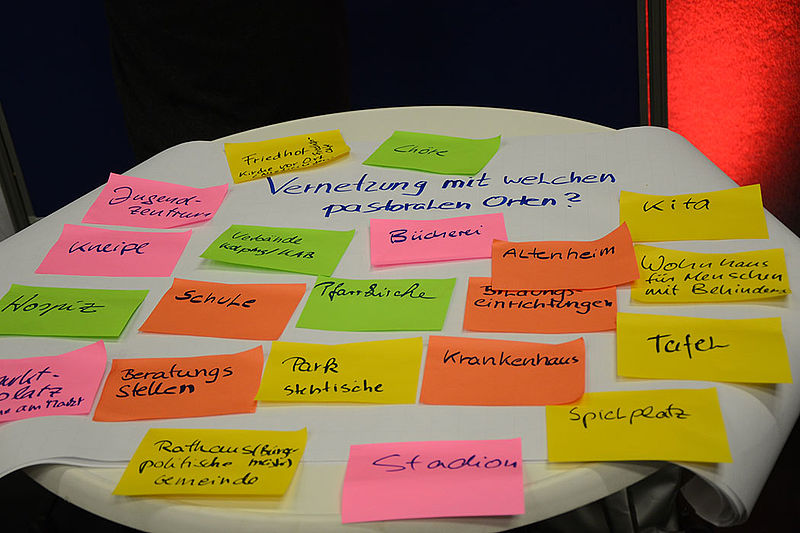 Friedhof
Kirche vor Ort
Chöre
Vernetzung mit welchen
pastoralen Orten?
Jugend-
zentrum
Kita
Kneipe
Verbände
Kolping/KAB
Bücherei
Altenheim
Wohnhaus
für Menschen
mit Behinderu
Hospiz
Schule
Pfarrkirche
Bildungs-
einrichtungen
Tafel
arkt-
platz
am Markt
Beratungs
Stellen
Park
stichtische
Krankenhaus
Spielplatz
Rathaus (Bürger
politische meister)
Gemeinde
Stadion